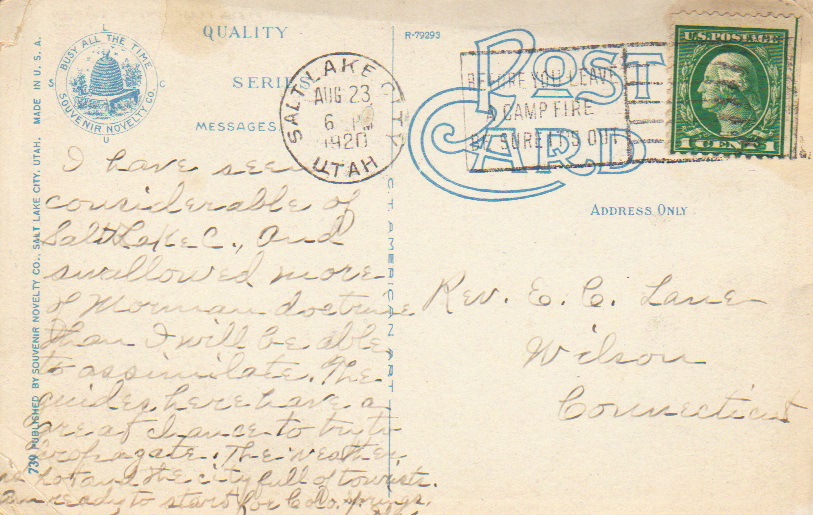 QUALITY
SERIES
MESSAGES
R-79293
POST
CARD
ADDRESS ONLY
BUSY ALL THE TIME
SOUVENIR NOVELTY CO.
S L C U
SALT LAKE CITY
AUG 23
6 PM
1920
UTAH
BEFORE YOU LEAVE
A CAMP FIRE
BE SURE IT'S OUT
U.S. POSTAGE
1 CENT 1
739 PUBLISHED BY SOUVENIR NOVELTY CO., SALT LAKE CITY, UTAH. MADE IN U.S.A.
CT AMERICAN ART
I have seen
considerable of
Salt Lake C., and
swallowed more
of Morman doctrine
than I will be able
to assimilate. The
guides here have a
great chance to try to
propagate. The weather
is hot and the city full of tourists.
Am ready to start for Colo. Springs.
Rev. E. C. Lane
Wilson
Connecticut